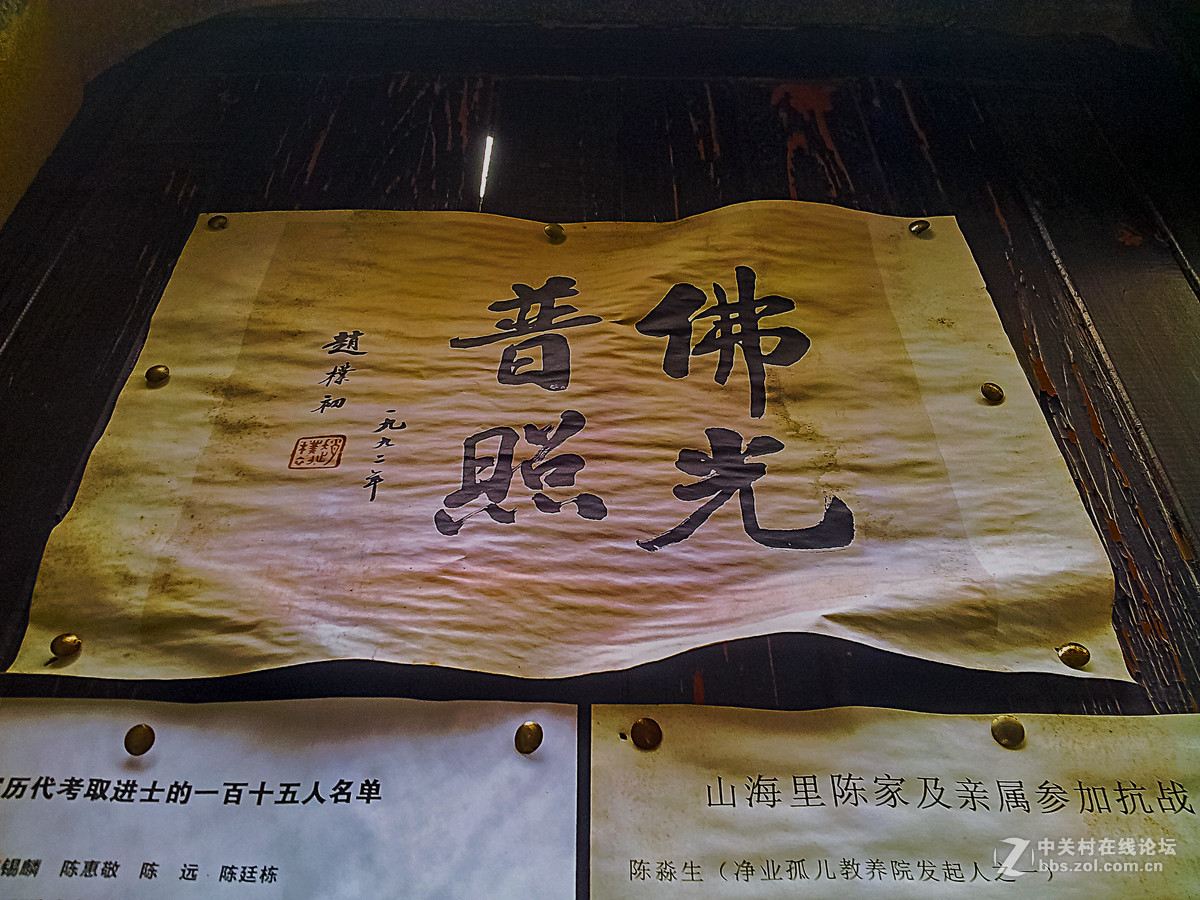 佛光
普照
一九九二年
趙樸初
历代考取进士的一百十五人名单
锡麟 陈惠敬 陈 远 陈廷栋
山海里陈家及亲属参加抗战
陈淼生（净业孤儿教养院发起人之一）
中关村在线论坛
bbs.zol.com.cn